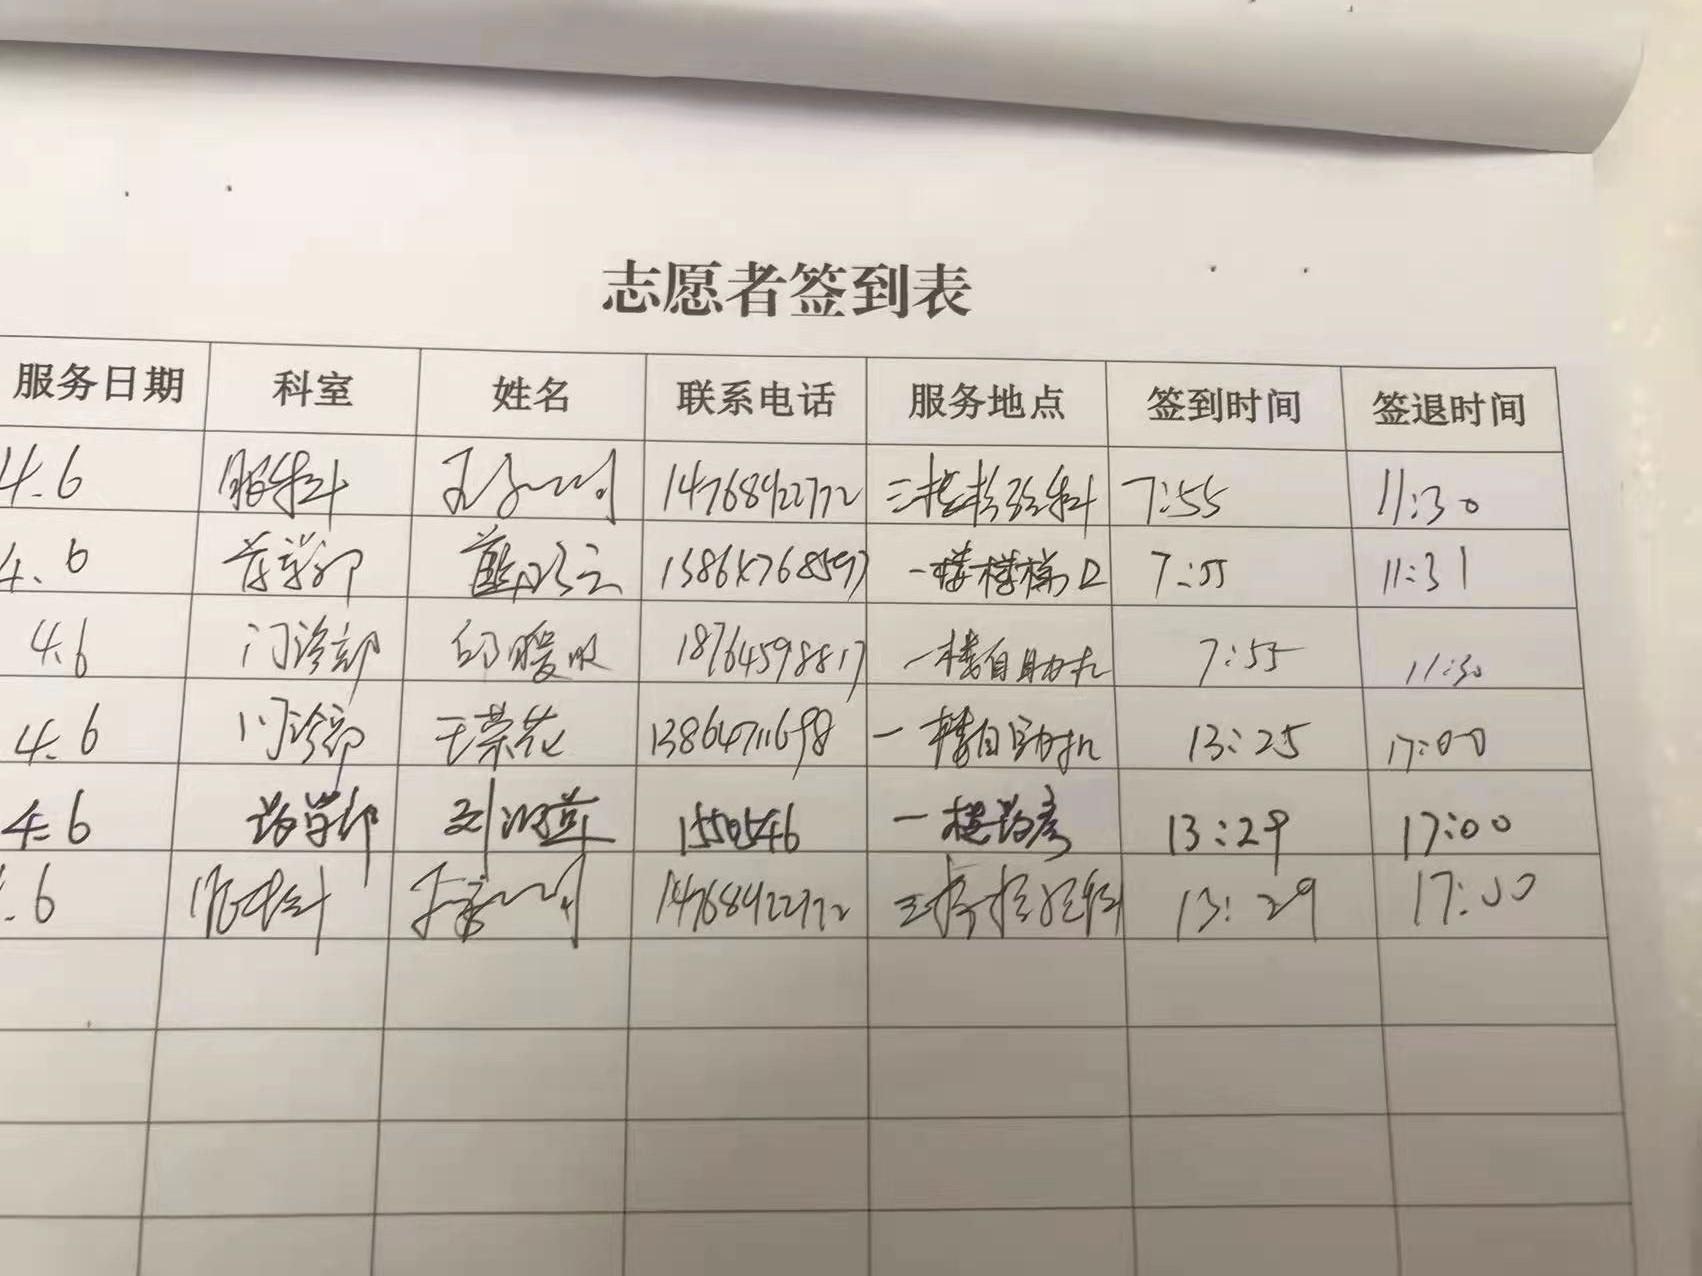 志愿者签到表
服务日期 科室 姓名 联系电话 服务地点 签到时间 签退时间
4.6 眼科 14768922772 7:55 11:30
4.6 药学部 一楼楼梯口 7:55 11:31
4.6 门诊部 18764598817 一楼自助机 7:55 11:30
4.6 门诊部 王荣花 13864711698 一楼自助机 13:25 17:00
4.6 药学部 1550546 一楼药房 13:29 17:00
.6 眼科 14768922772 13:29 17:00